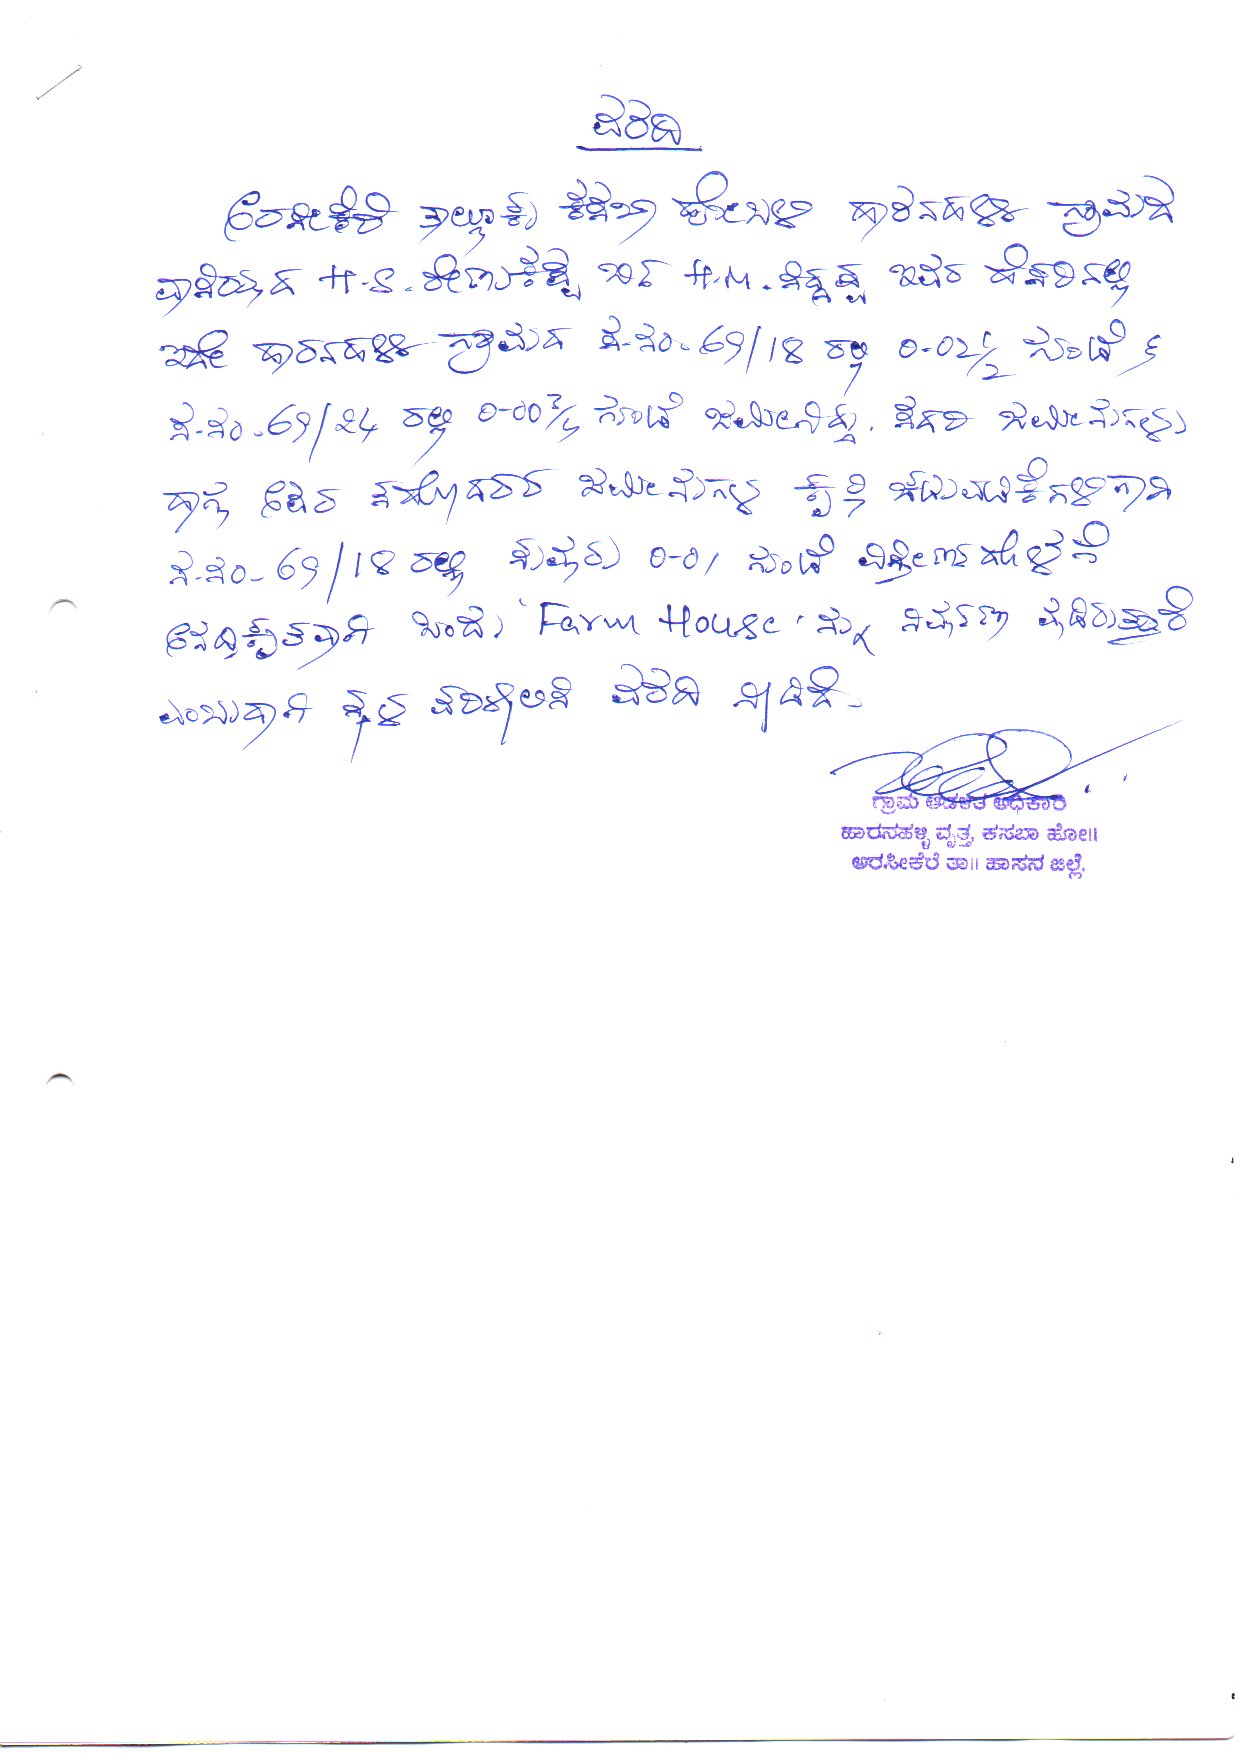 ವರದಿ
ಅರಸೀಕೆರೆ ತಾಲ್ಲೂಕು ಕಸಬಾ ಹೋಬಳಿ ಹಾರನಹಳ್ಳಿ ಗ್ರಾಮದ
ವಾಸಿಯಾದ H.S. ರೇಣುಕಪ್ಪ ಬಿನ್ H.M. ಸಿದ್ದಪ್ಪ ಇವರ ಹೆಸರಿನಲ್ಲಿ
ಇದೇ ಹಾರನಹಳ್ಳಿ ಗ್ರಾಮದ ಸ.ನಂ. 69/18 ರಲ್ಲಿ 0-02½ ಗುಂಟೆ &
ಸ.ನಂ. 69/24 ರಲ್ಲಿ 0-00¾ ಗುಂಟೆ ಜಮೀನಿದ್ದು. ಸದರಿ ಜಮೀನುಗಳು
ಹಾಗೂ ಅವರ ಸಹೋದರರ ಜಮೀನುಗಳ ಕೃಷಿ ಚಟುವಟಿಕೆಗಳಿಗಾಗಿ
ಸ.ನಂ. 69/18 ರಲ್ಲಿ ಸುಮಾರು 0-01 ಗುಂಟೆ ವಿಸ್ತೀರ್ಣದೊಳಗೆ
ಅನಧಿಕೃತವಾಗಿ ಒಂದು 'Farm House' ನ್ನು ನಿರ್ಮಾಣ ಮಾಡಿರುತ್ತಾರೆ
ಎಂಬುದಾಗಿ ಸ್ಥಳ ಪರಿಶೀಲಿಸಿ ವರದಿ ನೀಡಿದೆ.
ಗ್ರಾಮ ಆಡಳಿತ ಅಧಿಕಾರಿ
ಹಾರನಹಳ್ಳಿ ವೃತ್ತ, ಕಸಬಾ ಹೋ॥
ಅರಸೀಕೆರೆ ತಾ॥ ಹಾಸನ ಜಿಲ್ಲೆ.